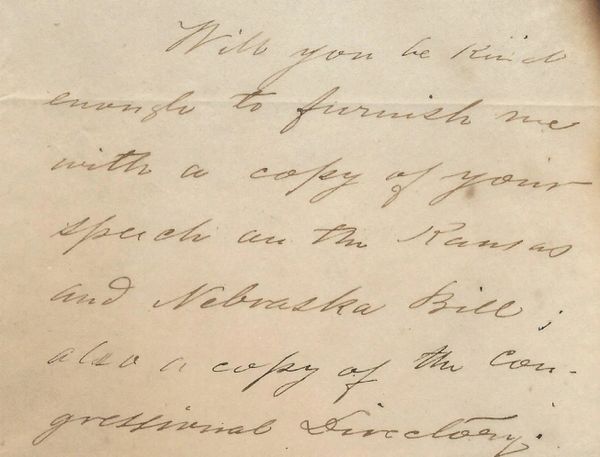 Will you be kind
enough to furnish me
with a copy of your
speech on the Kansas
and Nebraska Bill;
also a copy of the Con-
gressional Directory.